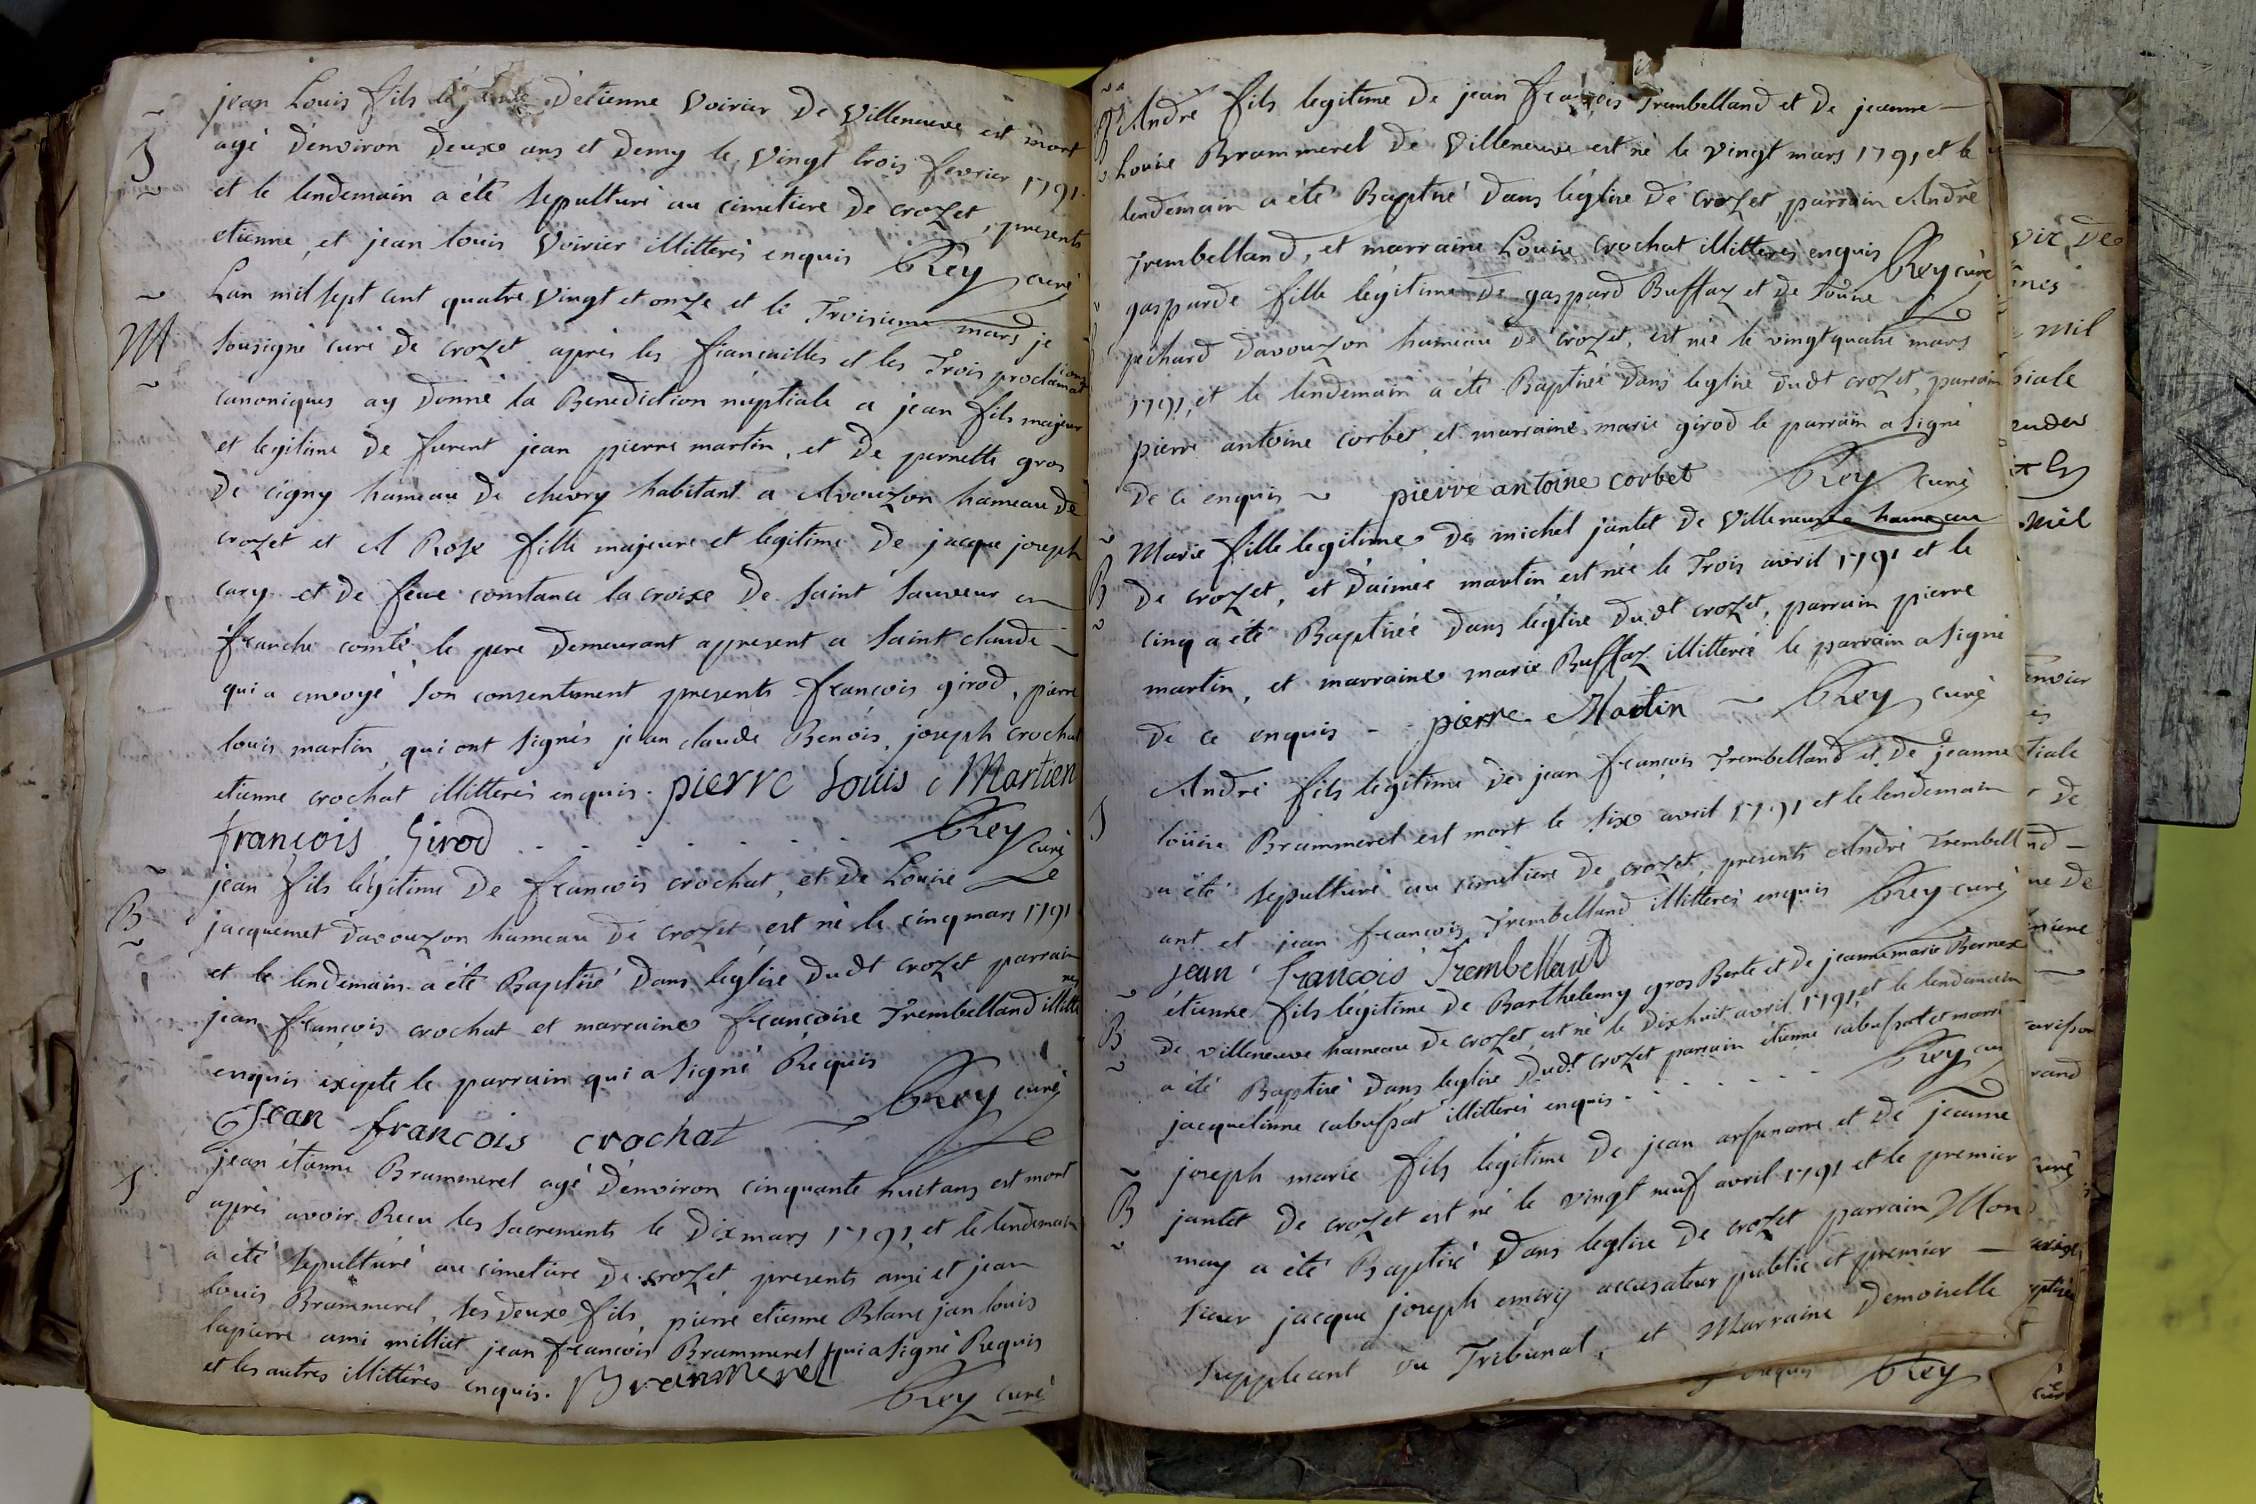 jean Louis fils légitime d'etienne Voirier de Villeneuve est mort
S
agé d'environ deuxe ans et demy le vingt trois fevrier 1791.
et le lendemain a été sepulturé au cimetiere de crozet, presents
etienne, et jean louis Voirier illitterés enquis Rey curé
Lan mil sept cent quatre vingt et onze et le Troisieme mars je
M
sousigné curé de crozet après les fiancailles et les Trois proclamations
canoniques ay donné la Benediction nuptiale a jean fils majeur
et legitime de furent jean pierre martin, et de pernette gros
de cigny hameau de chevry habitant a Avouzon hameau de
crozet et A Rose fille majeure et legitime de jacque joseph
cary et de feue constance la croixe de saint sauveur en
franche comté le pere demeurant appresent a saint claude
qui a envoyé son consentement presents françois girod, pierre
louis martin qui ont signés jean claude Benois, joseph crochat
etienne crochat illitterés enquis. pierre Louis Martien
françois Girod . . . . . . Rey curé
jean fils légitime de françois crochat, et de Louise
B
jacquemet davouzon hameau de crozet est né le cinq mars 1791
et le lendemain a été Baptisé dans leglise dudt crozet parrain
jean françois crochat et marraine françoise Trembelland illitterés
enquis exepté le parrain qui a signé Requis
Jean francois crochat Rey curé
S
jean étienne Brammerel agé d'environ cinquante huit ans est mort
après avoir Recu les sacrements le dix mars 1791 et le lendemain
a été sepulturé au cimetiere de crozet presents ami et jean
louis Brammerel, ses deuxe fils, pierre etienne Blanc jan louis
lapierre ami milliet jean françois Brammerel qui a signé Requis
et les autres illitterés enquis. Brammerel Rey curé
B
André fils legitime de jean françois Trembelland et de jeanne
Louise Brammerel de Villeneuve est né le vingt mars 1791 et le
lendemain a été Baptisé dans léglise de crozet, parrain André
Trembelland, et marraine Louise crochat illitterés enquis Rey curé
gasparde fille légitime de gaspard Buffaz et de Louise
pechard davouzon hameau de crozet, est née le vingt quatre mars
1791, et le lendemain a été Baptisée dans leglise dudt crozet, parrain
pierre antoine corbet et marraine marie girod le parrain a signé
de ce enquis pierre antoine corbet Rey curé
Marie fille legitime de michel jantet de Villeneuve hameau
B
de crozet, et d'aimée martin est née le Trois avril 1791 et le
cinq a été Baptisée dans léglise dudt crozet, parrain pierre
martin, et marraine marie Buffaz illitterée le parrain a signé
de ce enquis - pierre Martin Rey curé
André fils légitime de jean françois Trembelland et de jeanne
S
loüise Brammerel est mort le sixe avril 1791 et le lendemain
a été sepulturé au cimetiere de crozet, presents André Trembell
ant et jean françois Trembelland illitterés enquis Rey curé
jean françois Trembelland
étienne fils légitime de Barthelemy gros Bente et de jeanne marie Bernex
B
de villeneuve hameau de crozet, est né le dixhuit avril 1791, et le lendemain
a été Baptisé dans leglise dudt crozet parrain étienne cabussat et marr
jacquelinne cabussat illitterés enquis . . . . . . Rey cu
joseph marie fils legitime de jean et de jeanne
B
jantet de crozet est né le vingt neuf avril 1791 et le premier
may a été Baptisé dans leglise de crozet parrain Mon
sieur jacque joseph emery accusateur public et premier
suppleant du Tribunal, et Marraine Demoiselle
requis Rey